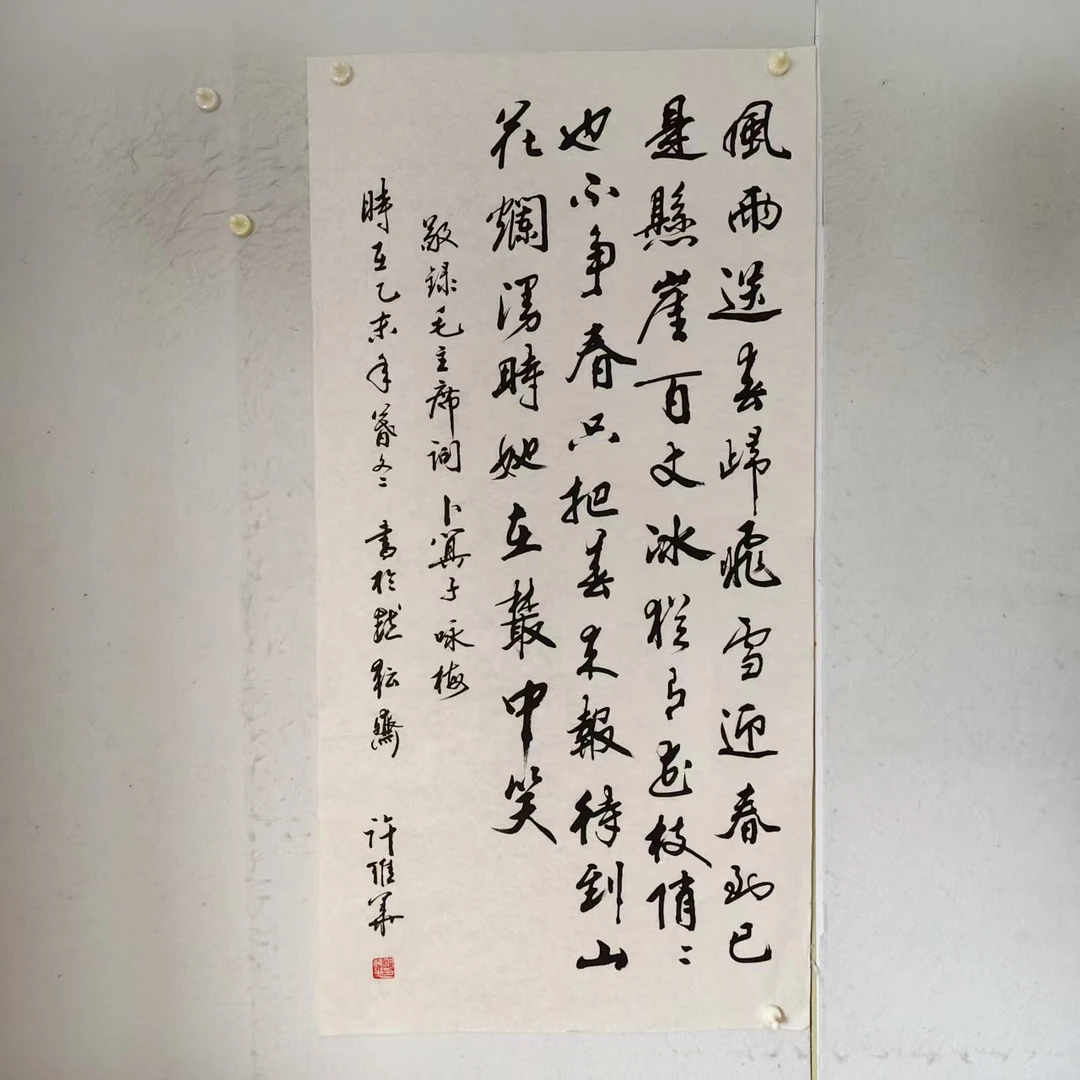 風雨送春歸飛雪迎春到已
是懸崖百丈冰猶有花枝俏々
也不争春只把春來報待到山
花爛漫時她在叢中笑
敬録毛主席詞卜算子咏梅
時在乙未年暮冬 書於耘齋 許維華